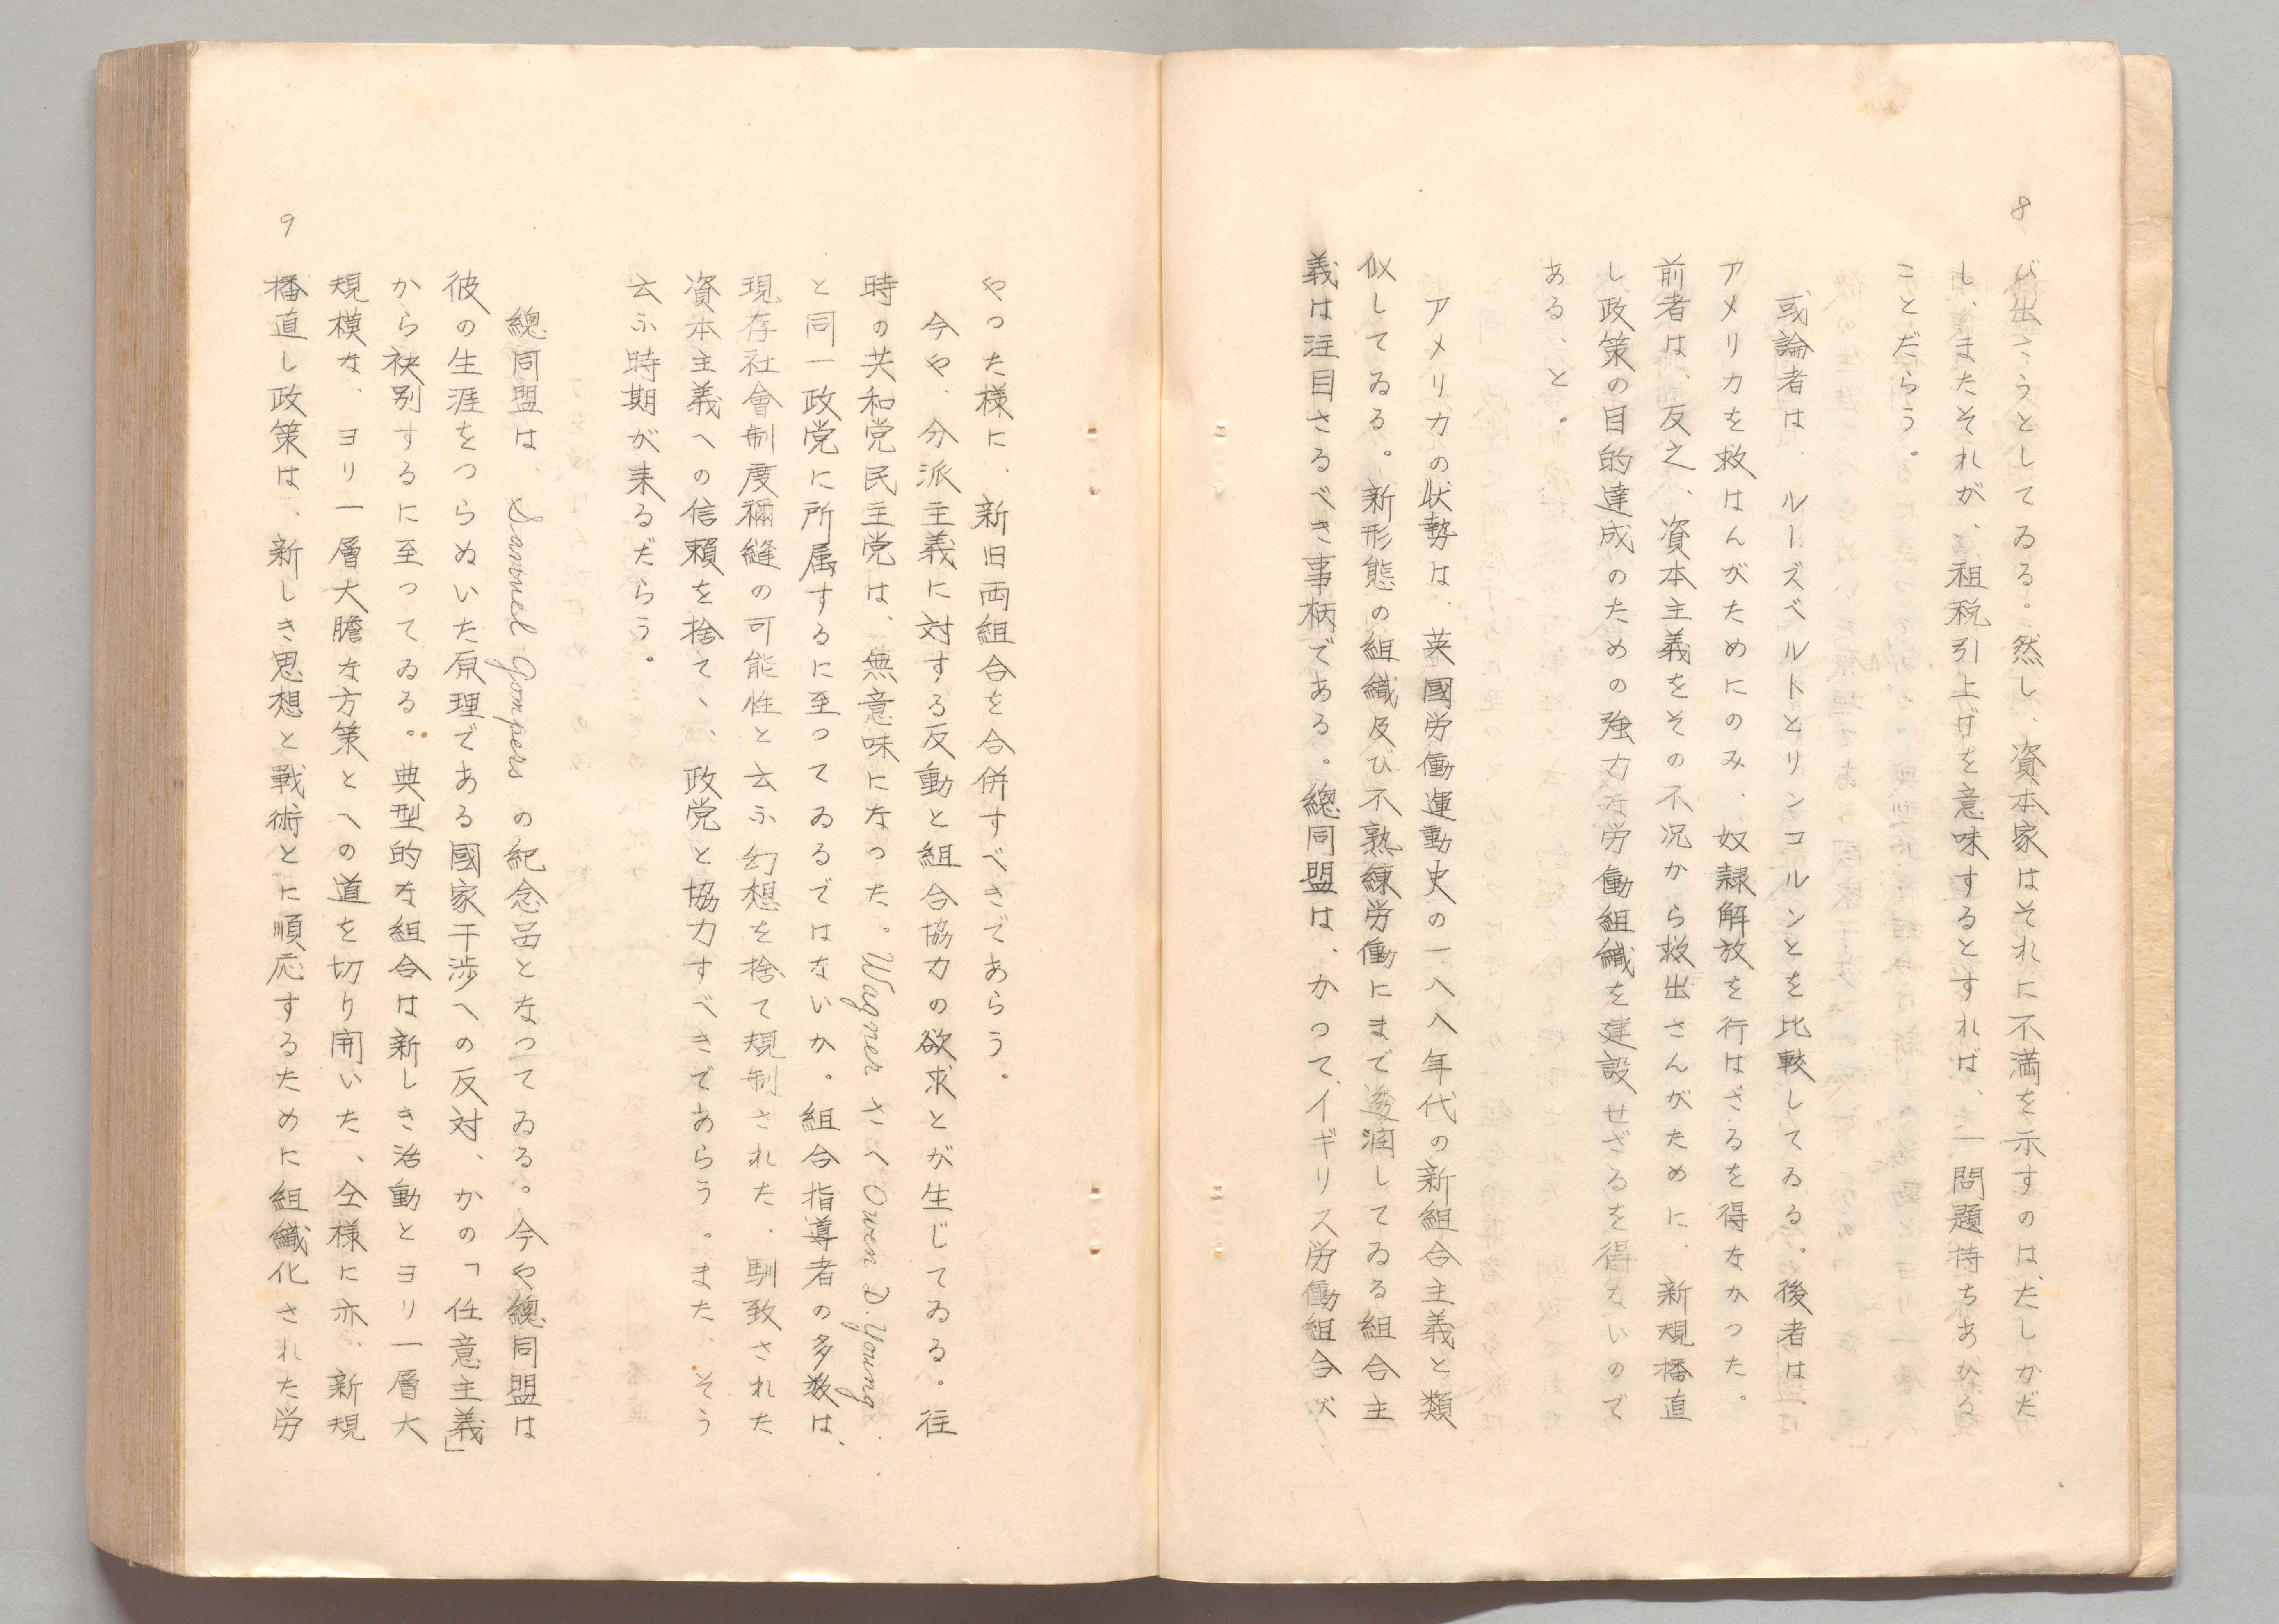 8
び出さうとしてゐる。然し、資本家はそれに不満を示すのは、たしかだ
し、またそれが、租税引上げを意味するとすれば、一問題持ちあがる
ことだらう。
或論者は、ルーズベルトとリンコルンとを比較してゐる。後者は、
アメリカを救はんがためにのみ、奴隷解放を行はざるを得なかつた。
前者は、反之、資本主義をその不況から救出さんがために、新規播直
し政策の目的達成のための強力な労働組織を建設せざるを得ないので
ある、と。
アメリカの状勢は、英國労働運動史の一八八年代の新組合主義と類
似してゐる。新形態の組織及び不熟練労働にまで浸潤してゐる組合主
義は注目さるべき事柄である。總同盟は、かつて、イギリス労働組合が
やつた様に、新旧両組合を合併すべきであらう。
今や、分派主義に対する反動と組合協力の欲求とが生じてゐる。往
時の共和党民主党は、無意味になつた。Wagner さへ Owen D. Young
と同一政党に所属するに至つてゐるではないか。組合指導者の多数は、
現存社會制度彌縫の可能性と云ふ幻想を捨て規制された、馴致された
資本主義への信頼を捨て、、政党と協力すべきであらう。また、そう
云ふ時期が来るだらう。
總同盟は、Samuel Gompers の紀念品となつてゐる。今や總同盟は
彼の生涯をつらぬいた原理である國家干渉への反対、かの「任意主義」
から袂別するに至つてゐる。典型的な組合は新しき活動とヨリ一層大
規模な、ヨリ一層大膽な方策とへの道を切り開いた、仝様に亦、新規
播直し政策は、新しき思想と戰術とに順応するために組織化された労
9